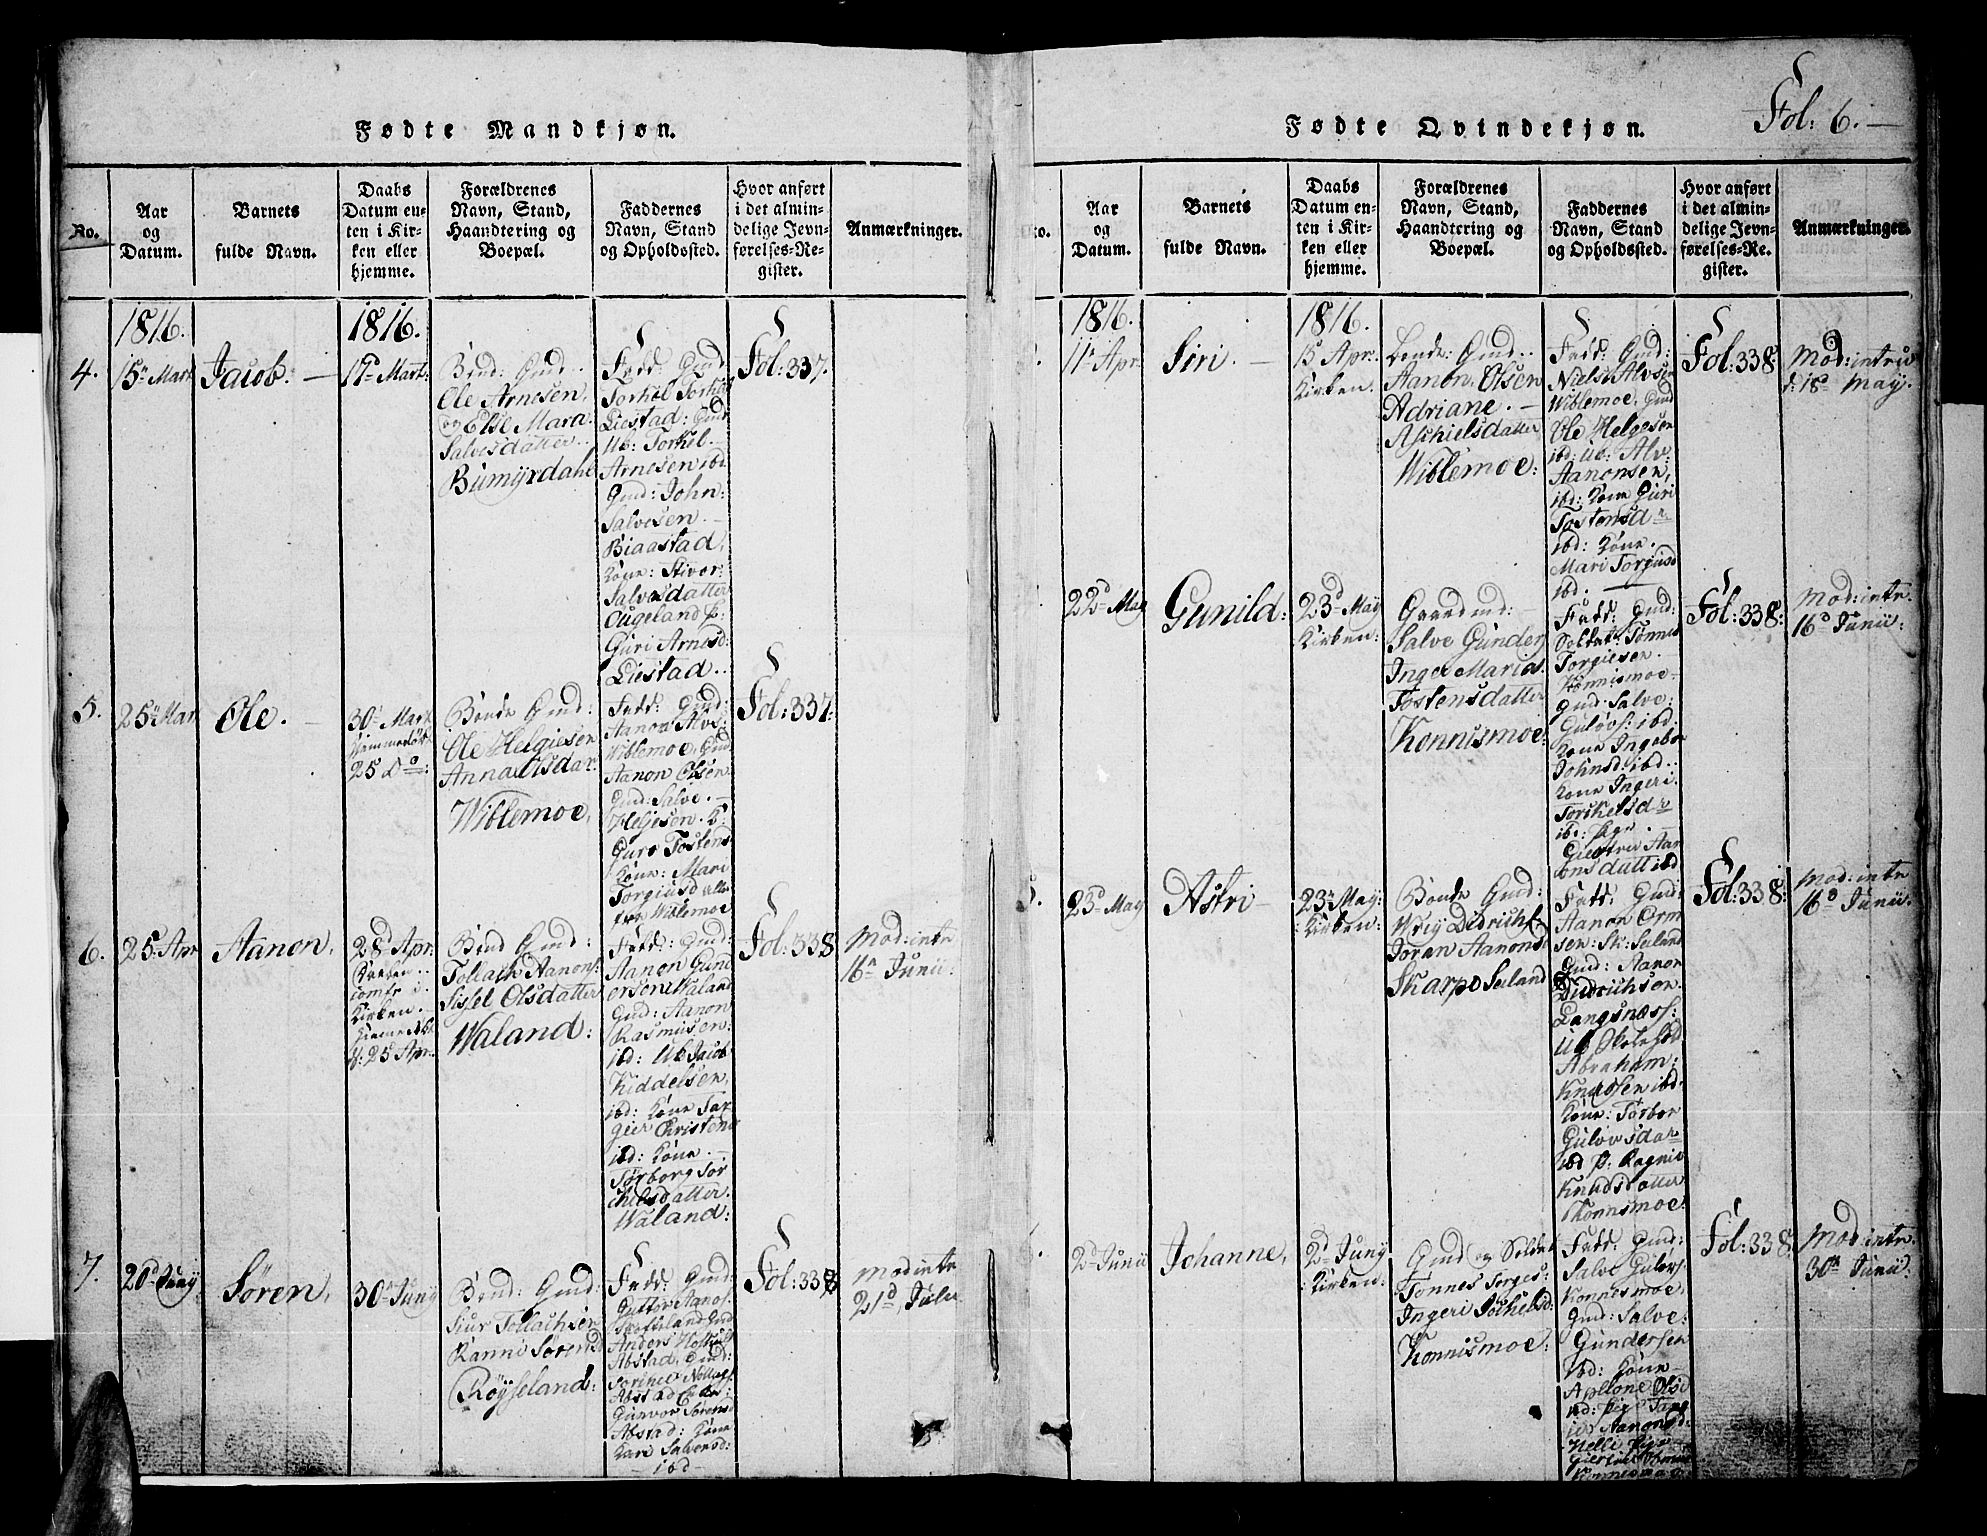 Fødte Mandkjøn.
No.
Aar
og
Datum.
Barnets
fulde Navn.
Daabs
Datum en-
ten i Kir-
ken eller
hjemme.
Forældrenes
Navn, Stand,
Haandtering og
Boepæl.
Faddernes
Navn, Stand
og Opholdssted.
Hvor anført
i det almin-
delige Jevn-
førelses-Re-
gister.
Anmærkninger.
1816.
1816.
4.
15 Mart
Jacob.
17 Mart:
Bond: Gmd:
Ole Arnesen,
og Else Mara
Salvesdatter
Bumyrdahl
Fadd: Gmd
Torkel Torkels
Liestad: Gmd
Ub: Torkel
Arnesen ibd
Gmd: John
Salvesen
Biaastad,
Kone: Sivor
Salvesdatter
Ougeland p:
Guri Arnesd:
Liestad
Fol: 337.
5.
25 Mar
Ole.
30 Mart
25 do:
Bonde Gmd:
Ole Helgiesen
Anna Olsdar
Wiblemoe,
Fadd: Gmd:
Aanon Alvs:
Wiblemoe, Gmd
Aanon Olsen
Gmd: Salve
Heljesen. K:
Guro Tostens
Kone: Mari
Torgiusd alle
fra Wiblemoe
Fol: 337.
6.
25 Apr
Aanon,
28 Apr:
Kirken.
d: 25 Apr.
Bond Gmd:
Tollach Aanons:
Sissel Olsdatter
Waland:
Fadd: Gmd:
Aanon Gund
ersen Waland
Gmd: Aanon
Rasmusen:
ibd: Ub Jacob
Kiddelsen,
ibd: Kone Tar
gier Christens
ibd: Kone
Torborg Tor
chelsdatter
Waland:
Fol: 338
Mod: intr
16 Junii:
7.
20 Juny
Søren,
30 Juny
Bond: Gmd:
Siur Tollachsen
Ranni Sørensd
Røyseland:
Fadd: Gmd:
Guttor Aanos:
Anders
Abstad, Gmd:
Abstad
Gunvor Sørensd
Abstad: Kone
Kari Salvensd:
ibd
Fol: 338
Mod intr
21 Julii
Fol: 6.
Fødte Qvindekjøn.
No.
Aar
og
Datum.
Barnets
fulde Navn.
Daabs
Datum en-
ten i Kir-
ken eller
hjemme.
Forældrenes
Navn, Stand,
Haandtering og
Boepæl.
Faddernes
Navn, Stand
og Opholdssted.
Hvor anført
i det almin-
delige Jevn-
førelses-Re-
gister.
Anmærkninger.
1816.
1816.
11 Apr
Siri.
15 Apr:
Kirken.
Bonde: Gmd:
Aanon Olsen
Adriane
Aschielsdatter
Wiblemoe:
Fadd: Gmd:
Niels Alvsen
Wiblemoe, Gmd
Ole Helgesen
ibd: Ub: Alv:
Aanonsen,
ibd: Kone Guri
Tostensdr
ibd: Kone.
Mari Torgiusd
ibd.
Fol: 338
Mod: intru
d: 18 May.
22 May
Gunild:
23 May
Kirken:
Salve Gunders
Inger Maria
Tostensdatter
Konnismoe:
Fadd: Gmd:
Soldat: Tønnes
Torgiesen
Konnismoe
Gmd Salve:
Guløvs: ibd:
Kone Ingebor
Johnsd: ibd.
Kone Ingeri
Torkelsdr
ibd: pige
Giertru Aan
onsdatt ibd
Fol: 338:
Mod: intr.
16 Junii:
5.
23 May
Astri
23 May:
Kirken:
Bonde Gmd:
Wriy Didrichs
Joran Aanonsd
Skarpe Seiland
Fadd: Gmd
Aanon Orm
sen: Sk: Seiland
Gmd: Aanon
Didrichsen
Langsnæss:
Ub Skolehold
Abraham:
Knudsen ibd.
Kone: Torbor
Gulovsdar
ibd p: Ragnil
Knudsdatter
Konnismoe:
Fol: 338:
Mod: intr
16 Junii.
2 Junii
Johanne,
2 Juny
Kirken:
Gmd og Soldat
Tønnes Torges:
Ingeri Tockelsd:
Konnismoe:
Fadd: Gmd:
Salve Guløvs:
Konnismoe,
Gmd: Salve:
Gundersen
ibd: Kone
Apelone Olsd
ibd: pige
Aanonsd:
Nelli
Konnismoe
Fol: 338.
Mod: intr.
30 Junii: